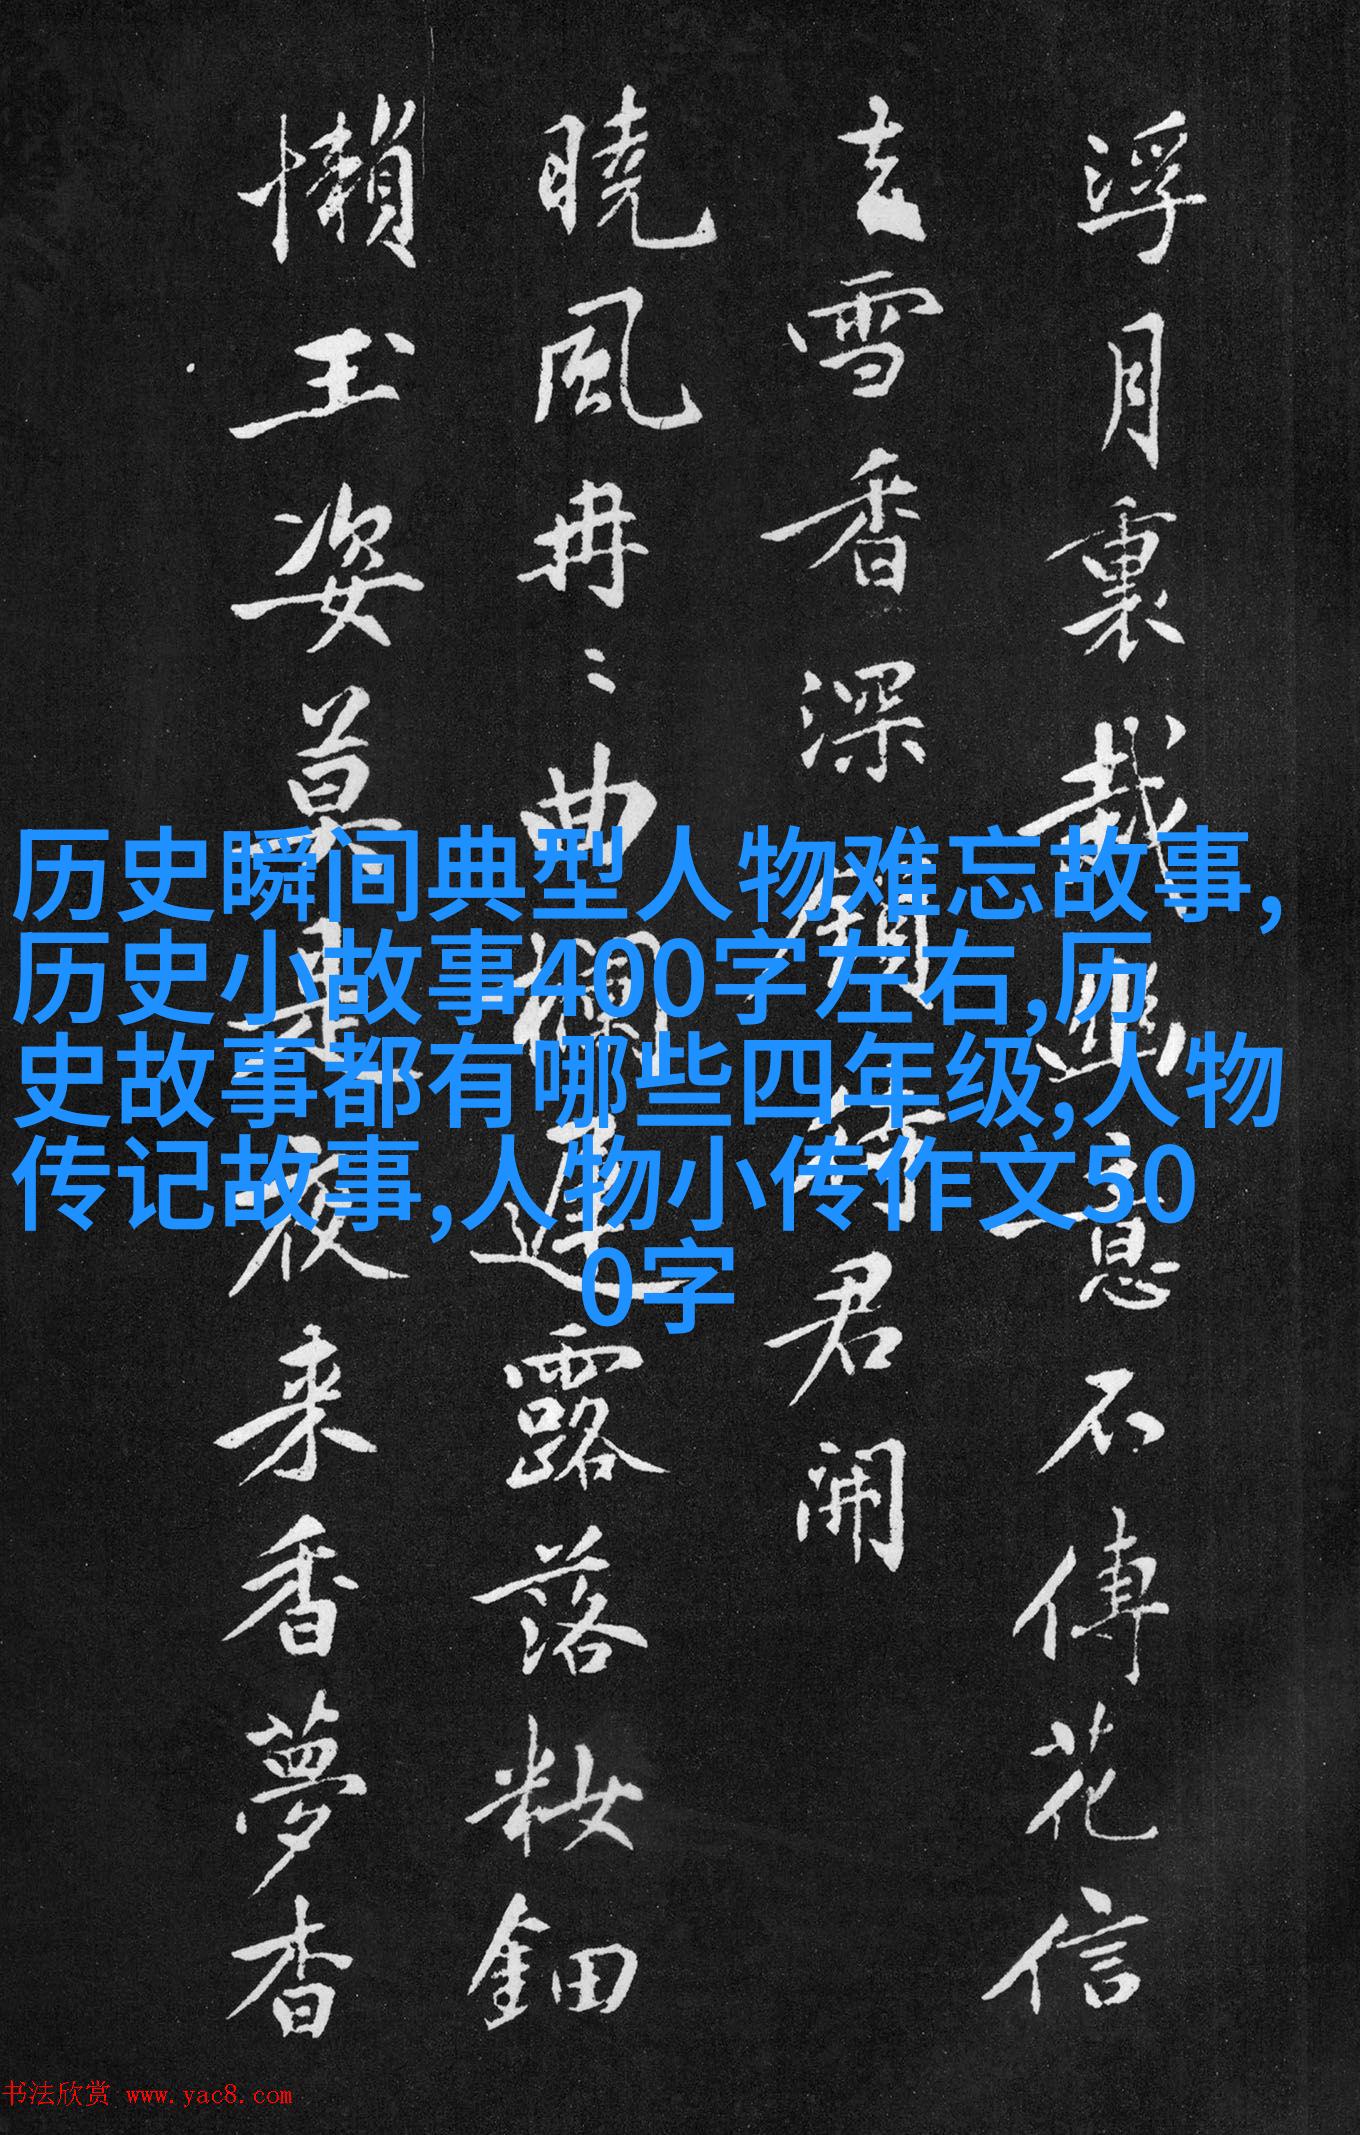 浮月裏栽幽意不傳花信
去雪香深鎖待君開
曉風冉〻曲欄遲露落妝鈿
懶玉姿莫是夜来香夢杳
历史瞬间典型人物难忘故事,
历史小故事400字左右,历
史故事都有哪些四年级,人物
传记故事,人物小传作文50
0字
书法欣赏 www.yac8.com